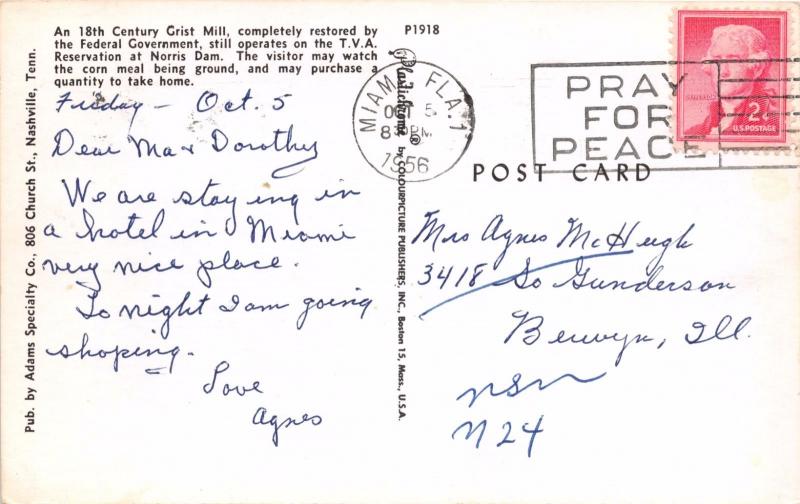 An 18th Century Grist Mill, completely restored by
the Federal Government, still operates on the T.V.A.
Reservation at Norris Dam. The visitor may watch
the corn meal being ground, and may purchase a
quantity to take home.
P1918
Friday - Oct. 5
Dear Ma & Dorothy
We are staying in
a hotel in Miami
very nice place.
To night I am going
shoping.
Love
Agnes
Pub. by Adams Specialty Co., 806 Church St., Nashville, Tenn.
Plastichrome ® by COLOURPICTURE PUBLISHERS, INC., Boston 15, Mass., U.S.A.
MIAMI, FLA. 1
OCT 5
8 PM
1956
PRAY
FOR
PEACE
JEFFERSON
2¢
U.S. POSTAGE
POST CARD
Mrs Agnes McHugh
3418 So Gunderson
Berwyn, Ill.
nsn
N24